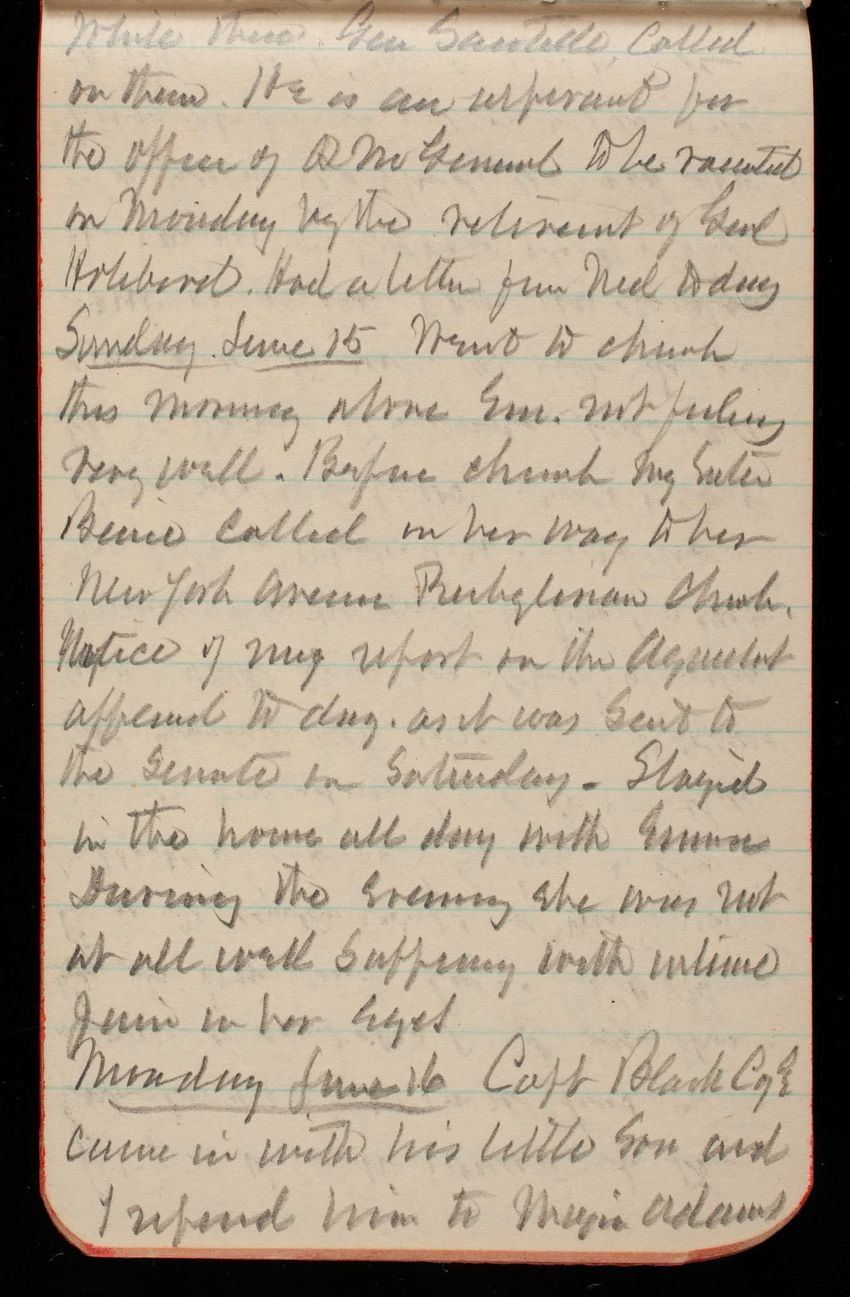 While there Gen Sawtelle called
on them. He is an aspirant for
the office of Q M General to be vacated
on Monday by the retirement of Genl
Holabird. Had a letter from Ned today
Sunday June 15 Went to church
this morning alone Em. not feeling
very well. Before church my Sister
called on her way to her
New York Avenue Presbyterian Church.
Notice of my report on the Aqueduct
appeared to day. as it was sent to
the Senate on Saturday - Stayed
in the house all day with Emma
During the evening she was not
at all well suffering with intense
pain in her eyes
Monday June 16 Capt Black C of E
came in with his little son and
I referred him to Major Adams